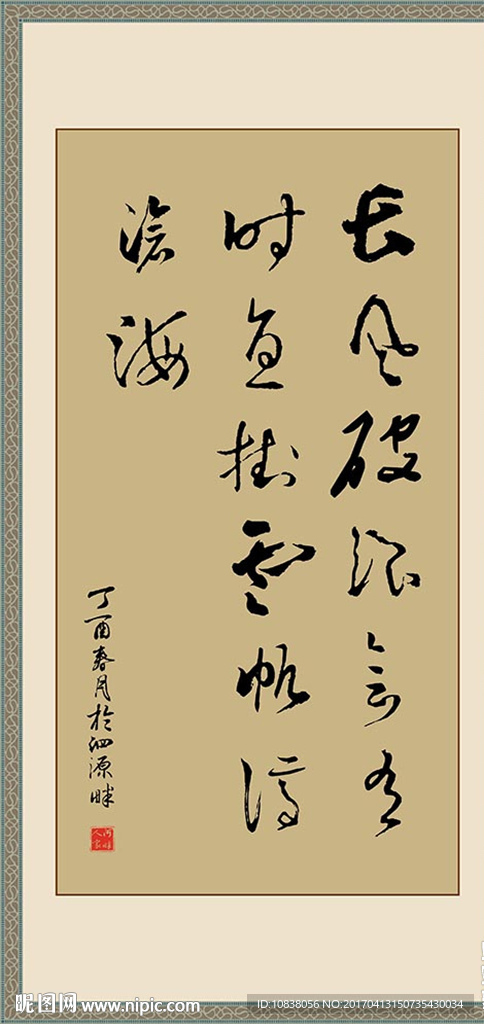 长风破浪会有
时直挂云帆济
沧海
丁酉春月於泗源畔
昵图网 www.nipic.com
ID:10838056 NO:20170413150735430034